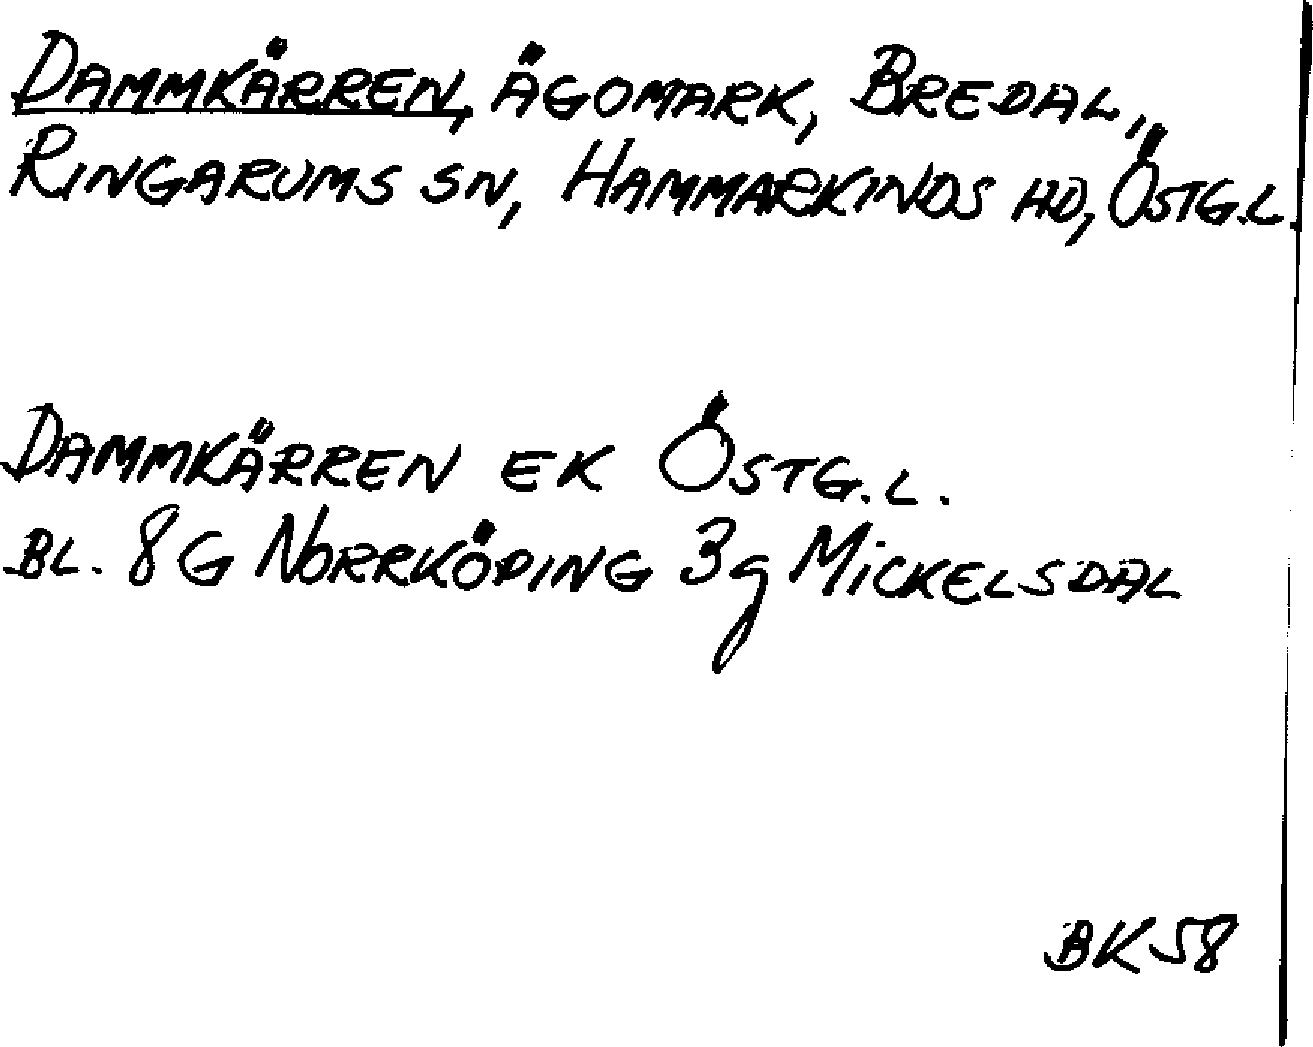 DAMMKÄRREN, ÄGOMARK, BREDAL,
RINGARUMS SN, HAMMARKINDS HD, ÖSTG.L.
DAMMKÄRREN EK ÖSTG.L.
BL. 8G NORRKÖPING 3g MICKELSDAL
BK 58